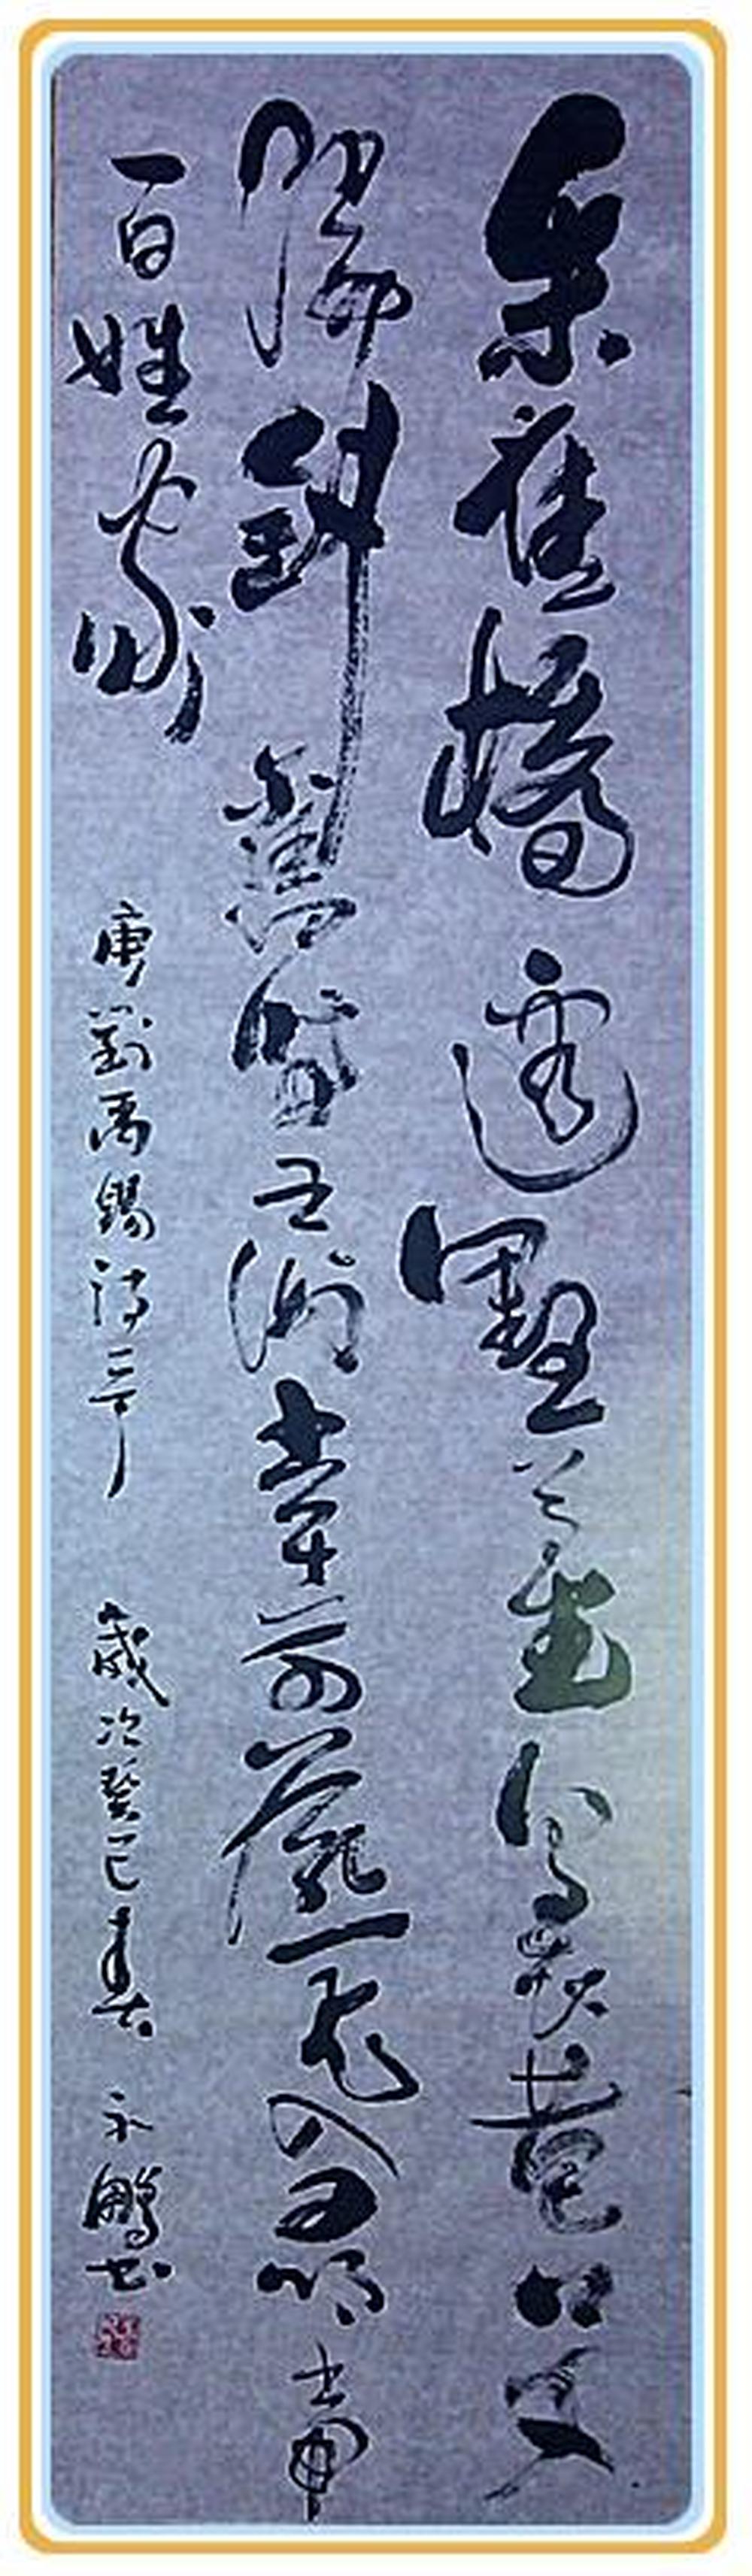 朱雀橋邊野草花烏衣巷口夕
陽斜舊時王謝堂前燕飛入尋常
百姓家 唐劉禹錫詩一首 歲次癸巳春 永鵬書